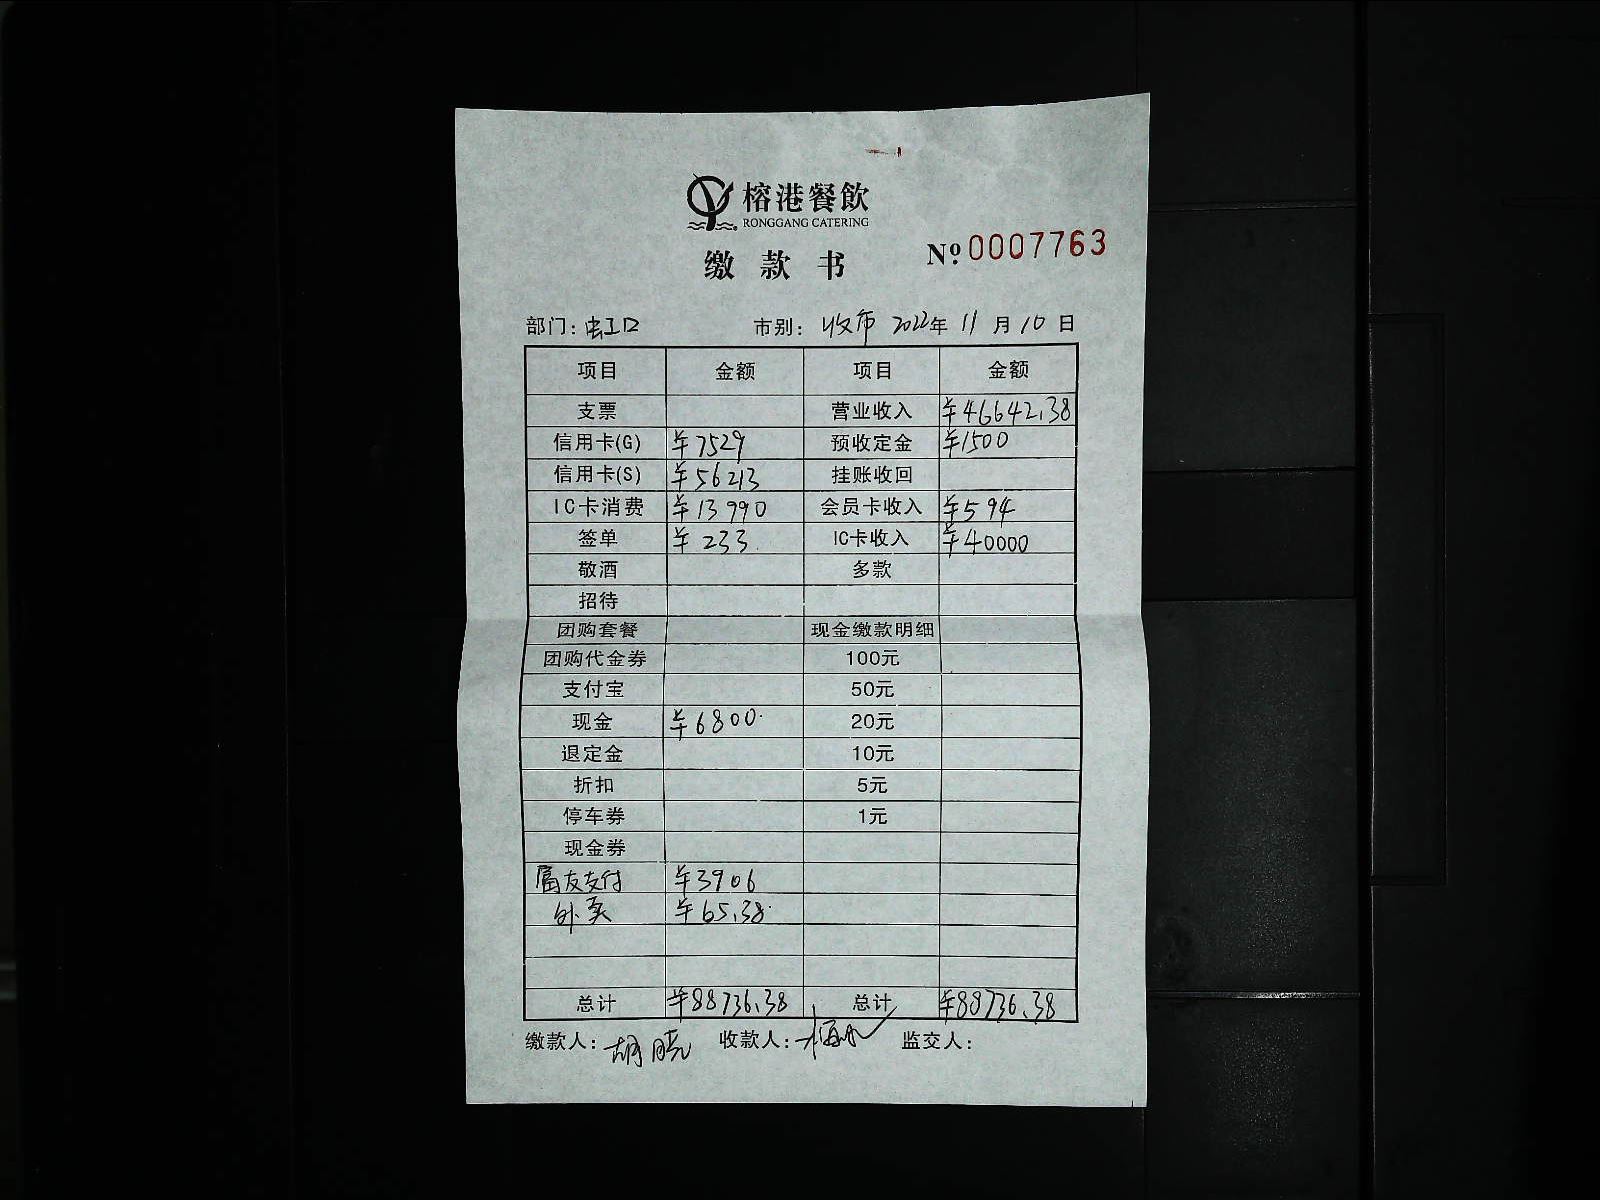 榕港餐飲
RONGGANG CATERING
缴款书 Nº 0007763
部门: 虹口 市别: 收市 2022年 11月10日
项目 金额 项目 金额
支票 营业收入 ¥46642.38
信用卡(G) ¥7529 预收定金 ¥1500
信用卡(S) ¥56213 挂账收回
IC卡消费 ¥13990 会员卡收入 ¥594
签单 ¥233 IC卡收入 ¥40000
敬酒 多款
招待
团购套餐 现金缴款明细
团购代金券 100元
支付宝 50元
现金 ¥6800 20元
退定金 10元
折扣 5元
停车券 1元
现金券
富友支付 ¥3906
外卖 ¥65.38
总计 ¥88736.38 总计 ¥88736.38
缴款人: 胡晓 收款人: 监交人: